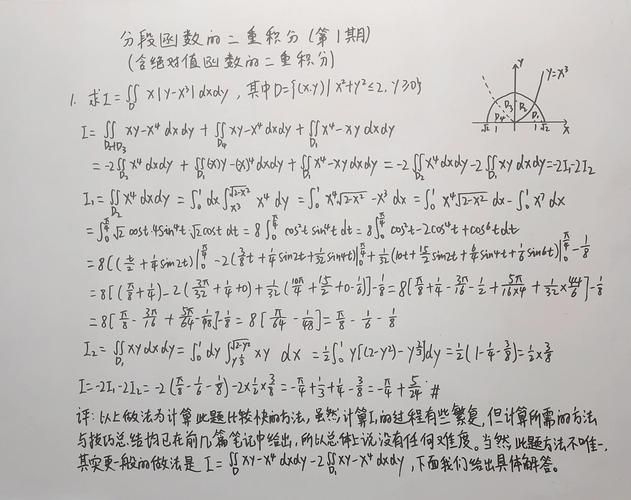 分段函数的二重积分(第1期)
(含绝对值函数的二重积分)
1. 求I=∬_D x|y-x³|dxdy, 其中D={(x,y)|x²+y²≤2, y≥0}
Y y=x³ D₃ D₂ D₄ D₁ √2 1 1 √2 x
I=∬_{D₂+D₃} xy-x⁴ dxdy + ∬_{D₄} xy-x⁴ dxdy + ∬_{D₁} x⁴-xy dxdy
=-2∬_{D₂} x⁴dxdy + ∬_{D₁}(-x)y-(-x)⁴dxdy + ∬_{D₁} x⁴-xy dxdy = -2∬_{D₂} x⁴dxdy - 2∬_{D₁} xy dxdy = -2I₁-2I₂
I₁=∬_{D₂} x⁴dxdy = ∫₀¹dx∫_{x³}^{√(2-x²)} x⁴dy = ∫₀¹ x⁴√(2-x²) - x⁷ dx = ∫₀¹ x⁴√(2-x²) dx - ∫₀¹ x⁷ dx
=∫₀^{π/4} √2 cost·4sin⁴t·√2 cost dt = 8∫₀^{π/4} cos²t sin⁴t dt = 8∫₀^{π/4} cos²t-2cos⁴t+cos⁶t dt
=8[(t/2+1/4 sin2t)|₀^{π/4} - 2(3/8 t+1/4 sin2t+1/32 sin4t)|₀^{π/4} + 1/32(10t+15/2 sin2t+6/4 sin4t+1/6 sin6t)|₀^{π/4}] - 1/8
=8[(π/8+1/4)-2(3π/32+1/4+0)+1/32(10π/4+15/2+0-1/6)]-1/8=8[π/8+1/4-3π/16-1/2+5π/(16×4)+1/32×44/6]-1/8
=8[π/8-3π/16+5π/64-1/48]-1/8=8[π/64-1/48]=π/8-1/6-1/8
I₂=∬_{D₁} xy dxdy=∫₀¹dy∫_{y^{1/3}}^{√(2-y²)} xy dx=1/2∫₀¹ y[(2-y²)-y^{2/3}]dy=1/2(1-1/4-3/8)=1/2×3/8
I=-2I₁-2I₂=-2(π/8-1/6-1/8)-2×1/2×3/8=-π/4+1/3+1/4-3/8=-π/4+5/24 #
评:以上做法为计算此题比较快的方法,虽然计算I₁的过程有些繁复,但计算所需的方法
与技巧总结均已在前几篇笔记中给出,所以总体上说没有任何难度。当然,此题方法不唯一,
其实更一般的做法是 I=∬_D xy-x⁴dxdy-2∬_{D₁} xy-x⁴dxdy,下面我们给出具体解答。